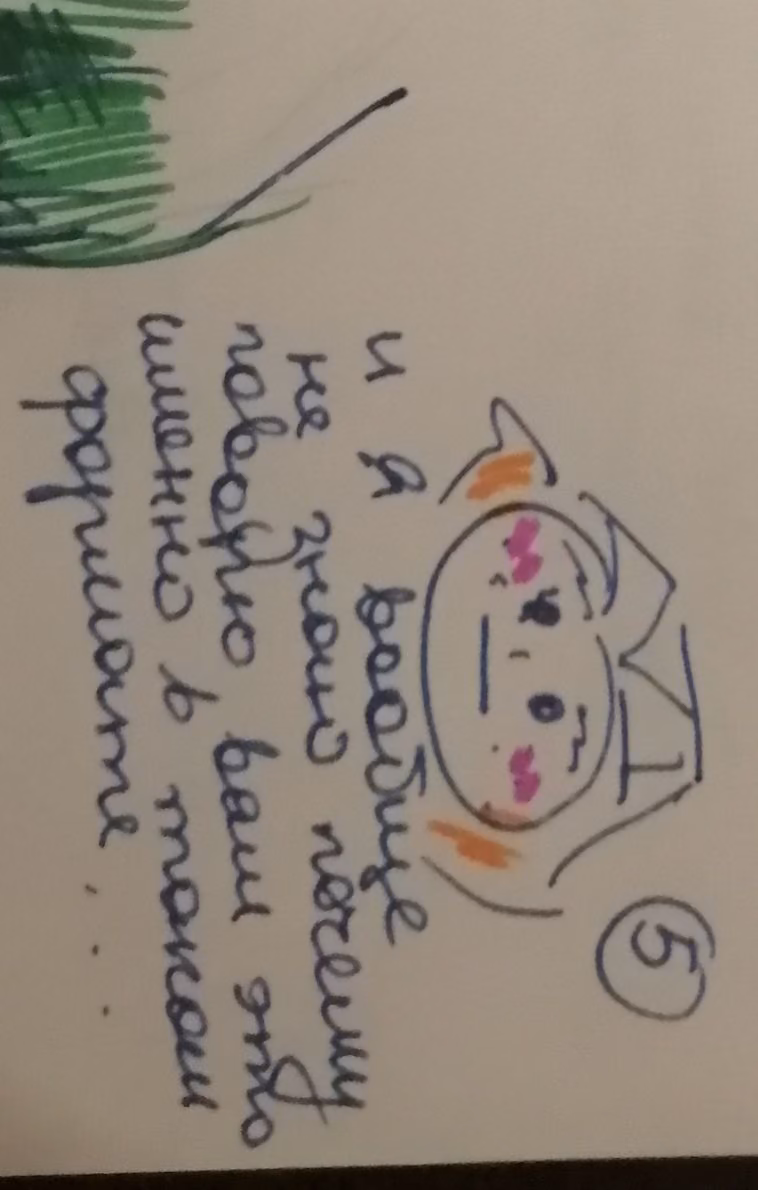 5
и я вообще
не знаю почему
говорю вам это
именно в таком
формате...